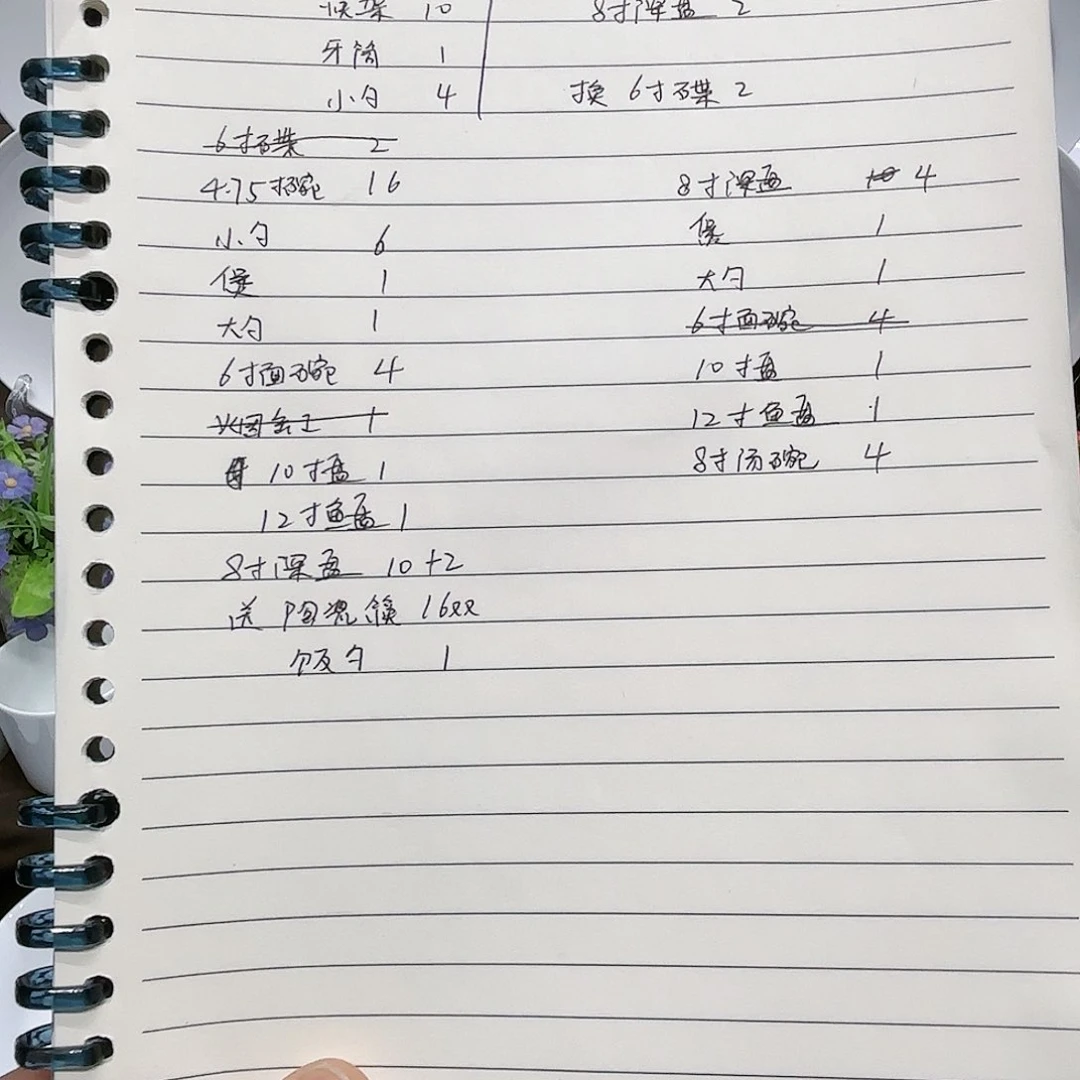 筷架 10
牙筒 1
小勺 4
8寸深盘 2
换 6寸碟 2
6寸碟 2
4.75寸碗 16
小勺 6
煲 1
大勺 1
6寸面碗 4
1
10寸盘 1
12寸鱼盘 1
8寸深盘 10+2
送 陶瓷筷 16双
饭勺 1
8寸深盘 10 4
煲 1
大勺 1
6寸面碗 4
10寸盘 1
12寸鱼盘 1
8寸汤碗 4